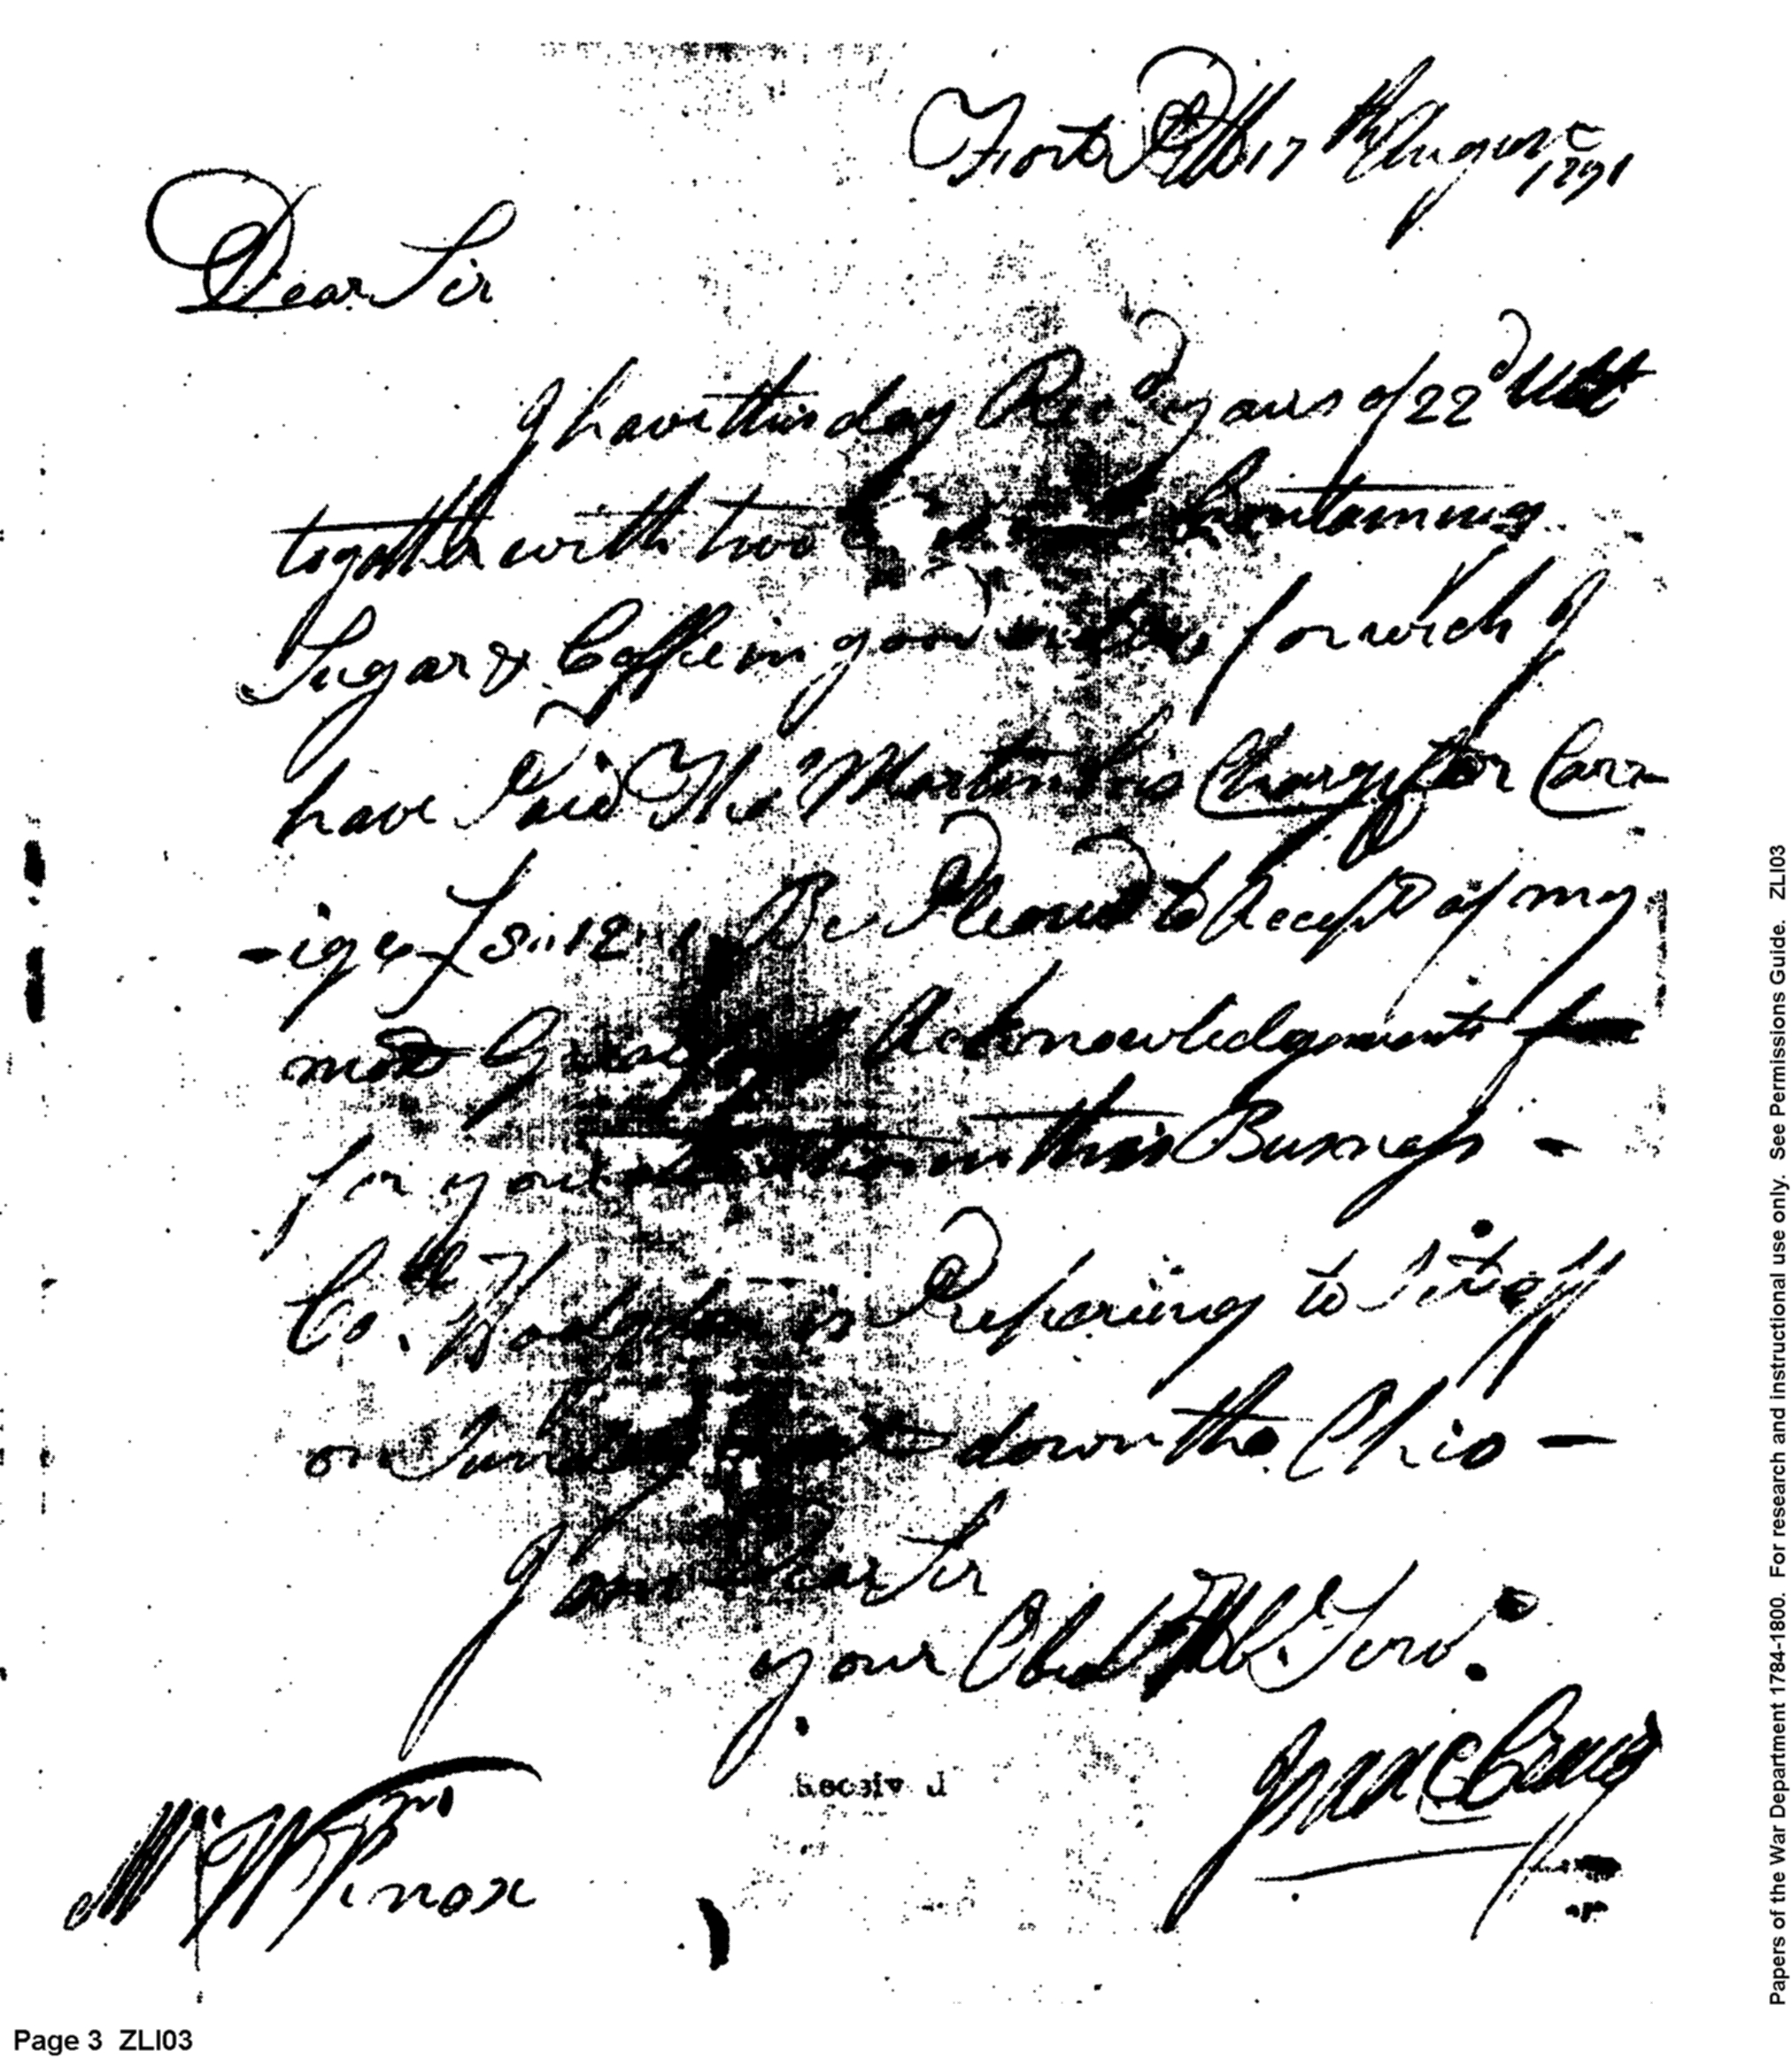 Fort Pitt 17th August 1791
Dear Sir
I have this day Recd yours of 22d Ult
together with two Containing
Sugar & Coffee in good order for wich I
have Paid Thos Martin his Charge for Carr
-ige £ 8.. 12.. Be Pleased to Accept of my
most Acknowledgements
for your attention in this Business -
Coll Hodgdon is Preparing to Set off
on Sunday next down the Ohio -
I am Dear Sir
your Obedt Hble Servt
Isaac Craig
Mr Wm Knox
Receiv d
Papers of the War Department 1784-1800. For research and instructional use only. See Permissions Guide. ZLI03
Page 3 ZLI03